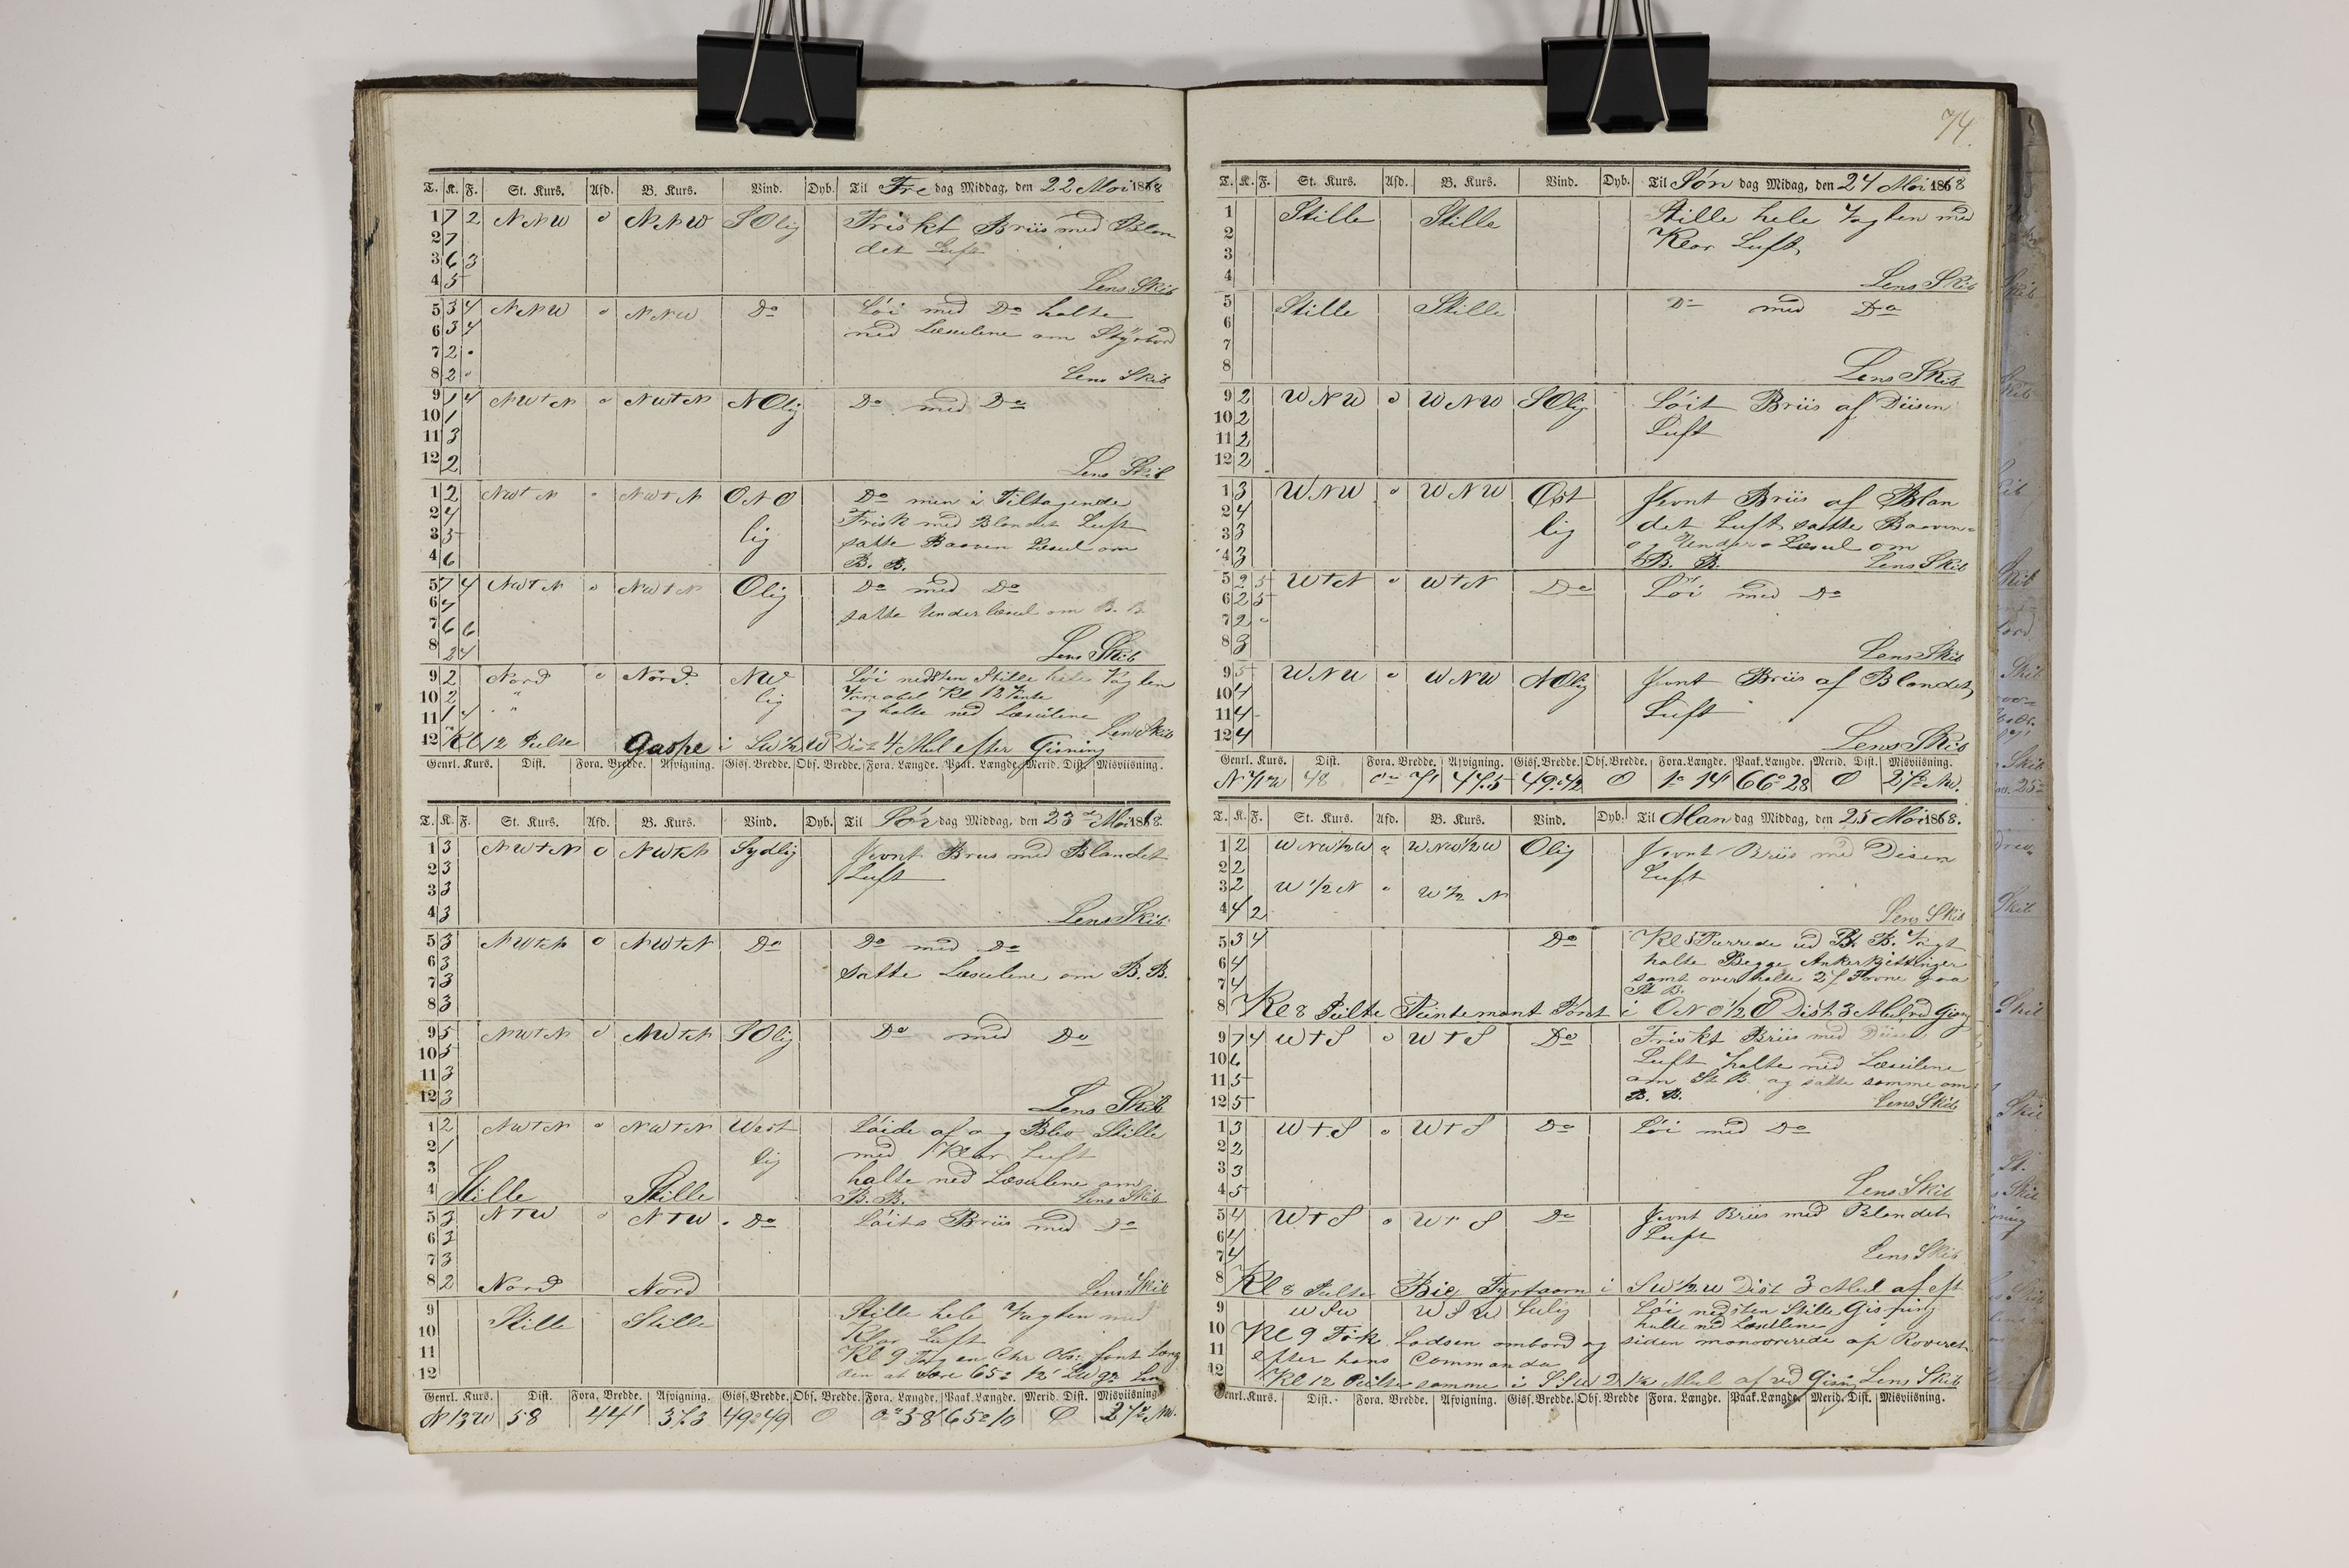 T. K. F. St. Kurs. Afd. B. Kurs. Vind. Dyb. Til Fre dag Middag, den 22 Mai 1868
1 7 2 NNW o NNW SOlig Friskt Briis med Blan
2 7 det Luft
3 6 3
4 5 Lens Skib
5 3 4 NNW o NNW Do Löi med Do halte
6 3 4 ned Læsulene om Styrbord
7 2
8 2 Lens Skib
9 1 4 NW+N o NW+N NOlig Do med Do
10 1
11 3
12 2 Lens Skib
1 2 NW+N o NW+N ONO Do men i Tiltagende
2 4 Frisk med Blandet Luft
3 5 lig satte Baaven Læsul om
4 6 B. B.
5 7 4 NW+N o NW+N Olig Do med Do
6 7 satte Underlæsul om B. B.
7 6 6
8 2 4 Lens Skib
9 2 Nord o Nord. NW Löi nedsten Stille hele Vagten
10 2 " lig Kl 12
11 1 4 " og halte ned Læsulene Lens Skib
12 Kl 12 Peilte Gaspe i SW½W Dist 4 Mil efter Gisning
Genrl. Kurs. Dist. Fora. Bredde. Afvigning. Gisf. Bredde. Obs. Bredde. Fora. Længde. Paak. Længde. Merid. Dist. Misviisning.
T. K. F. St. Kurs. Afd. B. Kurs. Vind. Dyb. Til Lör dag Middag, den 23de Mai 1868.
1 3 NW+N o NW+N Sydlig Jevnt Briis med Blandet
2 3 Luft
3 3
4 3 Lens Skib
5 3 NW+N o NW+N Do Do med Do
6 3 satte Læsulene om B. B.
7 3
8 3
9 5 NW+N o NW+N SOlig Do med Do
10 5
11 3
12 3 Lens Skib
1 2 NW+N o NW+N West Löide af og Blev Stille
2 1 lig med Klar Luft
3 halte ned Læsulene om
4 Stille Stille B. B. Lens Skib
5 3 N+W o N+W Do Löits Briis med Do
6 3
7 3
8 2 Nord Nord Lens Skib
9 Stille Stille Stille hele Vagten med
10 Klar Luft
11 Kl 9 Tog en Chr Obs: fant Læng
12 den at være 65° 12' W
Genrl. Kurs. Dist. Fora. Bredde. Afvigning. Gisf. Bredde. Obs. Bredde. Fora. Længde. Paak. Længde. Merid. Dist. Misviisning.
58 44' 37.3 49°49 O 0°58' 65°10 O 2½ NW.
74.
T. K. F. St. Kurs. Afd. B. Kurs. Vind. Dyb. Til Søn dag Midag, den 24 Mai 1868
1 Stille Stille Stille hele Vagten med
2 Klar Luft,
3
4 Lens Skib
5 Stille Stille Do med Do
6
7
8 Lens Skib
9 2 WNW o WNW SOlig Löit Briis af Diisen
10 2 Luft
11 2
12 2
1 3 WNW o WNW Øst Jevnt Briis af Blan
2 4 det Luft satte Baaven=
3 3 lig og Under=Læsul om
4 3 B. B. Lens Skib
5 2 5 W+N o W+N Do Löi med Do
6 2 5
7 2
8 3 Lens Skib
9 5 WNW o WNW NOlig Jevnt Briis af Blandet
10 4 Luft
11 4
12 4 Lens Skib
Genrl. Kurs. Dist. Fora. Bredde. Afvigning. Gisf. Bredde. Obs. Bredde. Fora. Længde. Paak. Længde. Merid. Dist. Misviisning.
N 71 W 48 47.5 49°42 O 1° 14' 66° 28 O 2½ NW.
T. K. F. St. Kurs. Afd. B. Kurs. Vind. Dyb. Til Man dag Middag, den 25 Mai 1868.
1 2 WNW½W o WNW½W Olig Jevnt Briis med Disen
2 2 Luft
3 2 W½N o W½N
4 4 2 Lens Skib
5 3 4 Do Kl 5 Purrede ud B. B. Vagt
6 4 halte Begge Ankerkjettinger
7 4 samt overhalte 25 Favne paa
St B.
8 Kl 8 Peilte Pointe mont Pønt i ONO½O Dist 3 Mil
9 7 4 W+S o W+S Do Friskt Briis med Diisen
10 6 Luft halte ned Læsulene
11 5 om St B. og satte samme om
12 5 B. B. Lens Skib
1 3 W+S o W+S Do Löi med Do
2 2
3 3
4 5 Lens Skib
5 4 W+S o W+S Do Jevnt Briis med Blandet
6 4 Luft
7 4 Lens Skib
8 Kl 8 Peilte Bic Fyrtaarn i SW½W Dist 3 Mil af eft
9 WSW WSW Lulig Löi nedsten Stille Gisning
halte ned Læsulene
10 Kl 9 Fik Lodsen ombord og siden manøvrerede
11 efter hans Commando
12 Kl 12 Peilte samme i SSW D 1½ Mil af ved Gisn Lens Skib
Genrl. Kurs. Dist. Fora. Bredde. Afvigning. Gisf. Bredde. Obs. Bredde Fora. Længde. Paak. Længde. Merid. Dist. Misviisning.